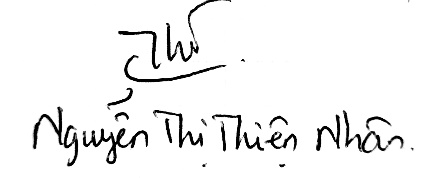 Nguyễn Thị Thiện Nhân.